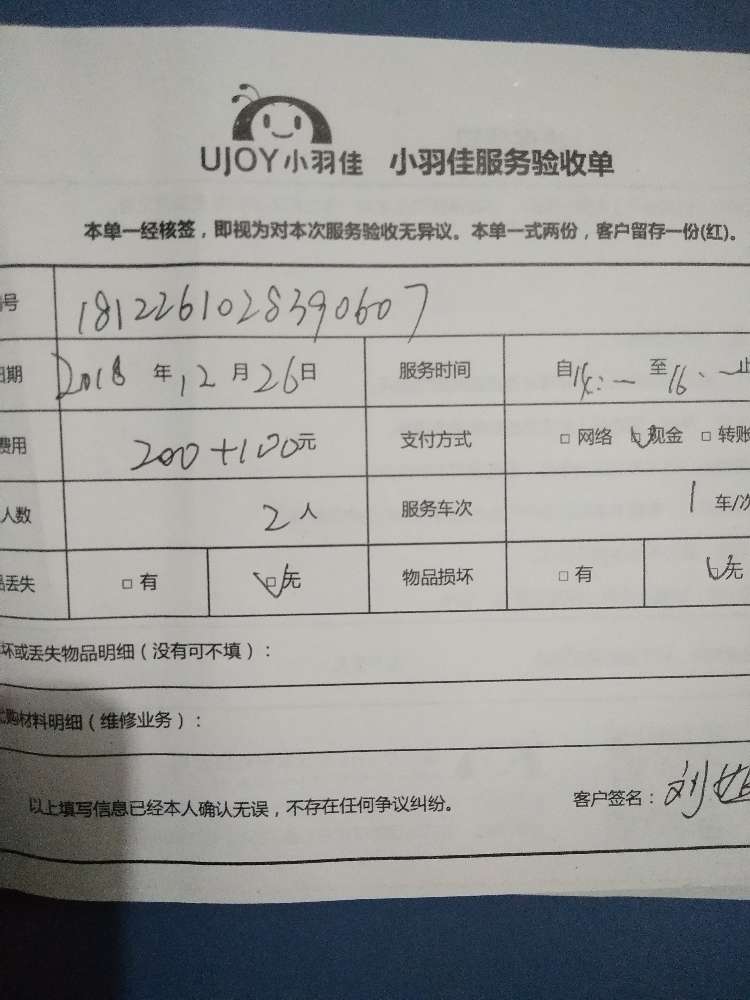 UJOY小羽佳 小羽佳服务验收单
本单一经核签，即视为对本次服务验收无异议。本单一式两份，客户留存一份(红)。
号 1812261028390607
日期 2018 年 12 月 26 日 服务时间 自 14:一 至 16、一 止
费用 200+100元 支付方式 □ 网络 □ 现金 □ 转账
人数 2 人 服务车次 1 车/次
品丢失 □ 有 □ 无 物品损坏 □ 有 □ 无
坏或丢失物品明细（没有可不填）：
代购材料明细（维修业务）：
以上填写信息已经本人确认无误，不存在任何争议纠纷。 客户签名：刘